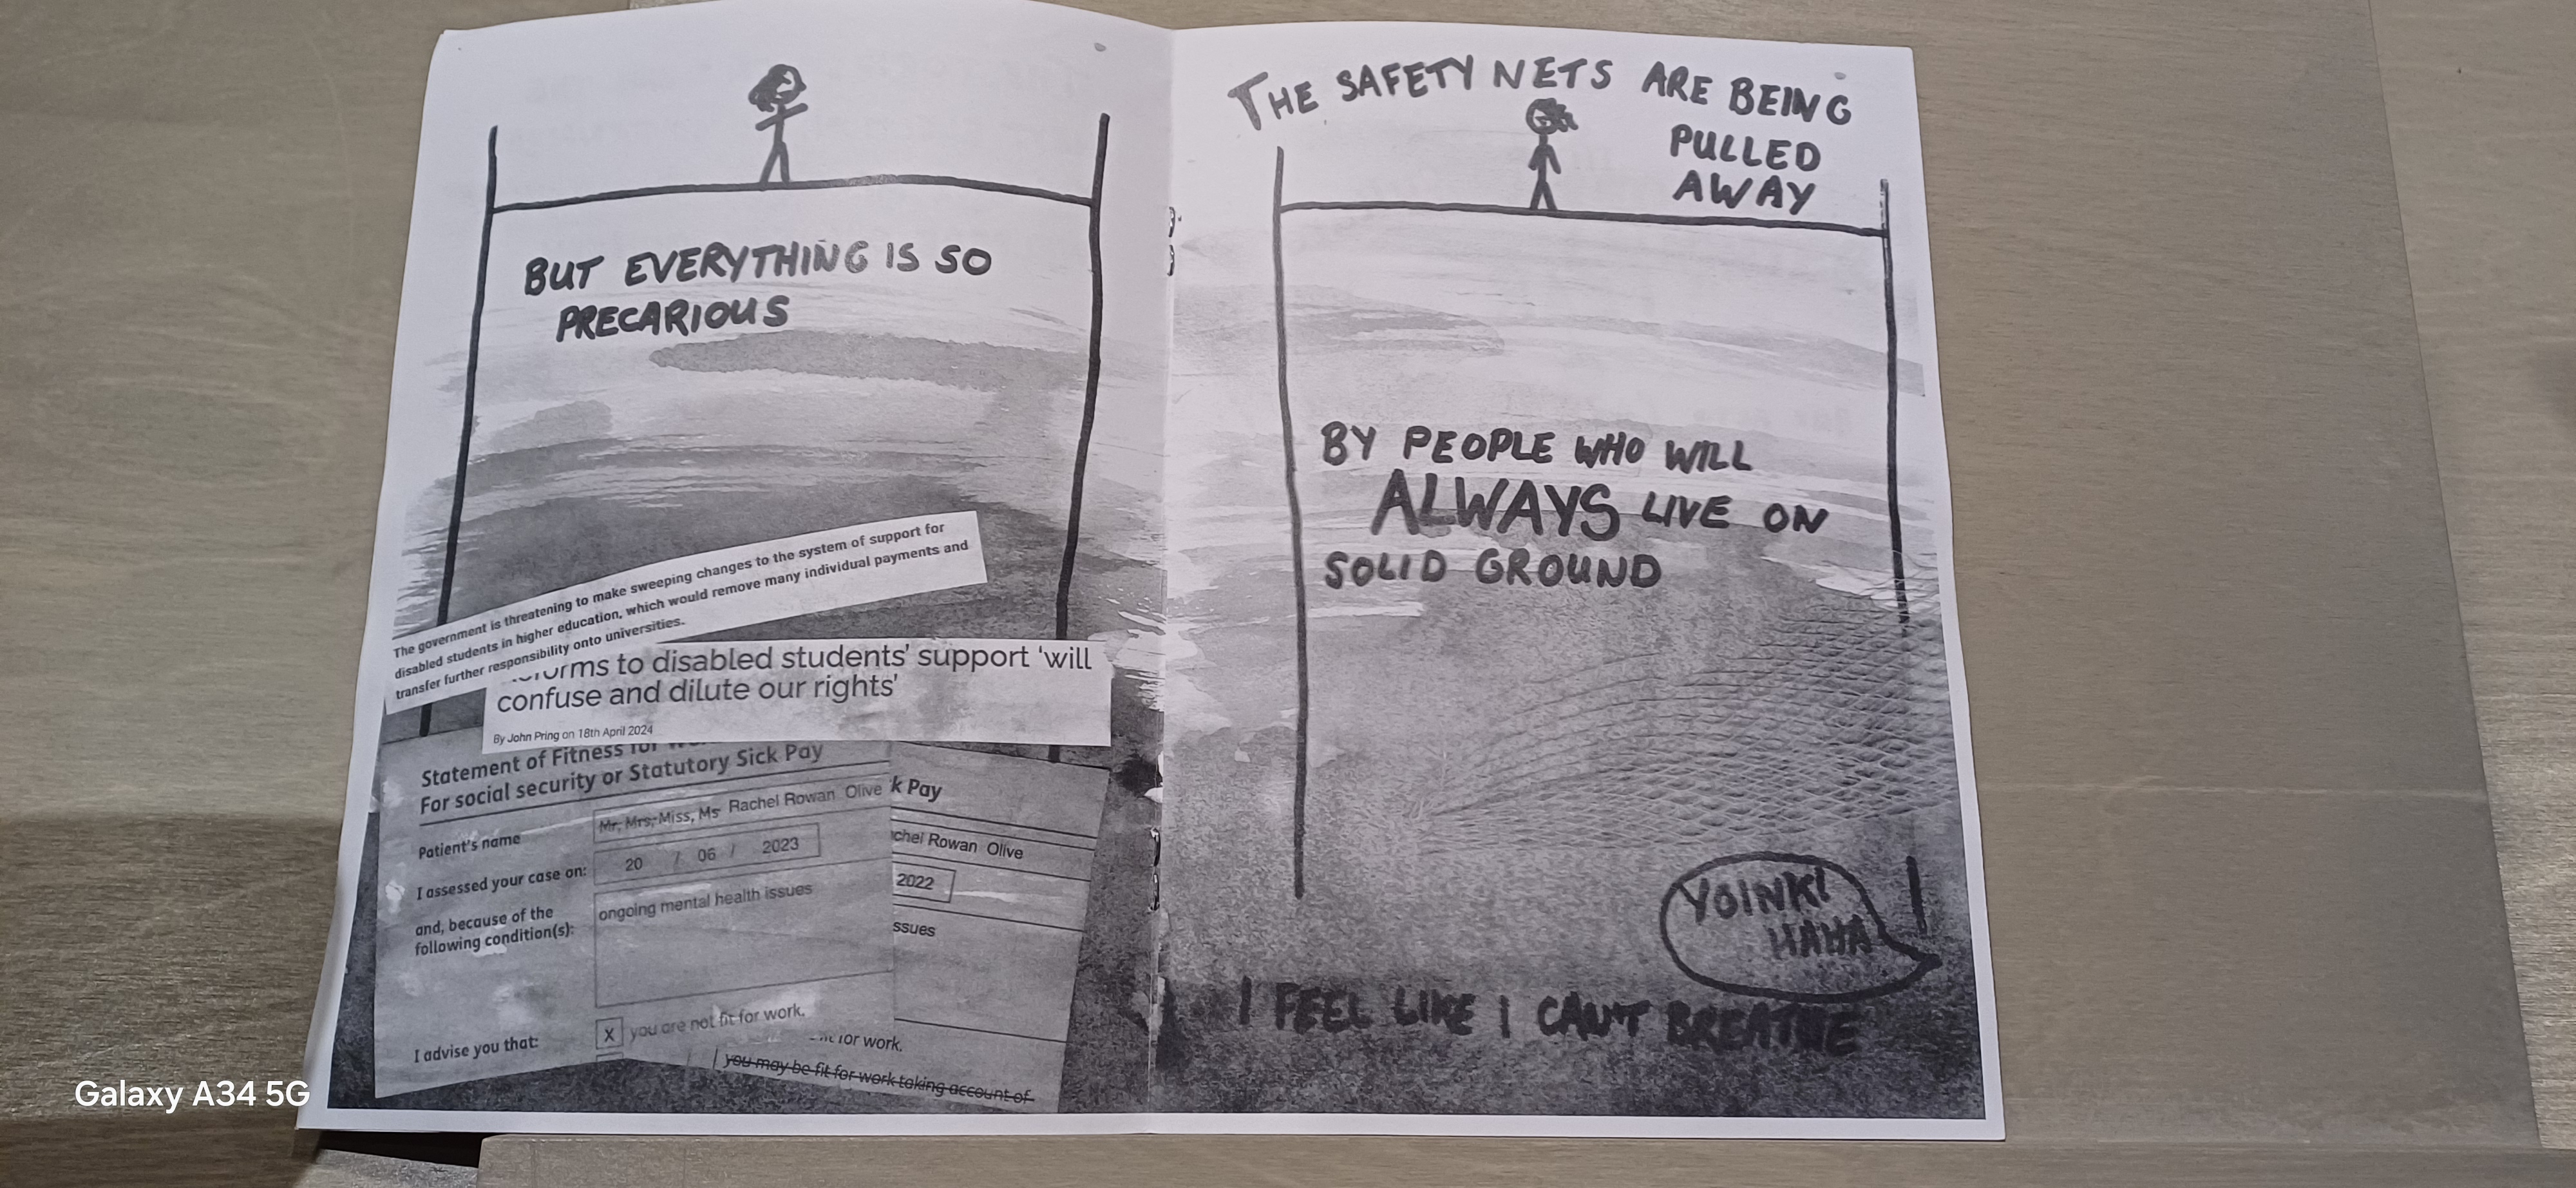 BUT EVERYTHING IS SO
PRECARIOUS
The government is threatening to make sweeping changes to the system of support for
disabled students in higher education, which would remove many individual payments and
transfer further responsibility onto universities.
to disabled students' support 'will
confuse and dilute our rights'
By John Pring on 18th April 2024
Statement of Fitness for
For social security or Statutory Sick Pay
Patient's name
Mr, Mrs, Miss, Ms Rachel Rowan Olive
I assessed your case on:
20 / 06 / 2023
and, because of the
following condition(s):
ongoing mental health issues
I advise you that:
X you are not fit for work.
k Pay
chel Rowan Olive
2022
ssues
for work.
you may be fit for work taking account of
THE SAFETY NETS ARE BEING
PULLED
AWAY
BY PEOPLE WHO WILL
ALWAYS LIVE ON
SOLID GROUND
YOINK!
HAHA
I FEEL LIKE I CAN'T BREATHE
Galaxy A34 5G